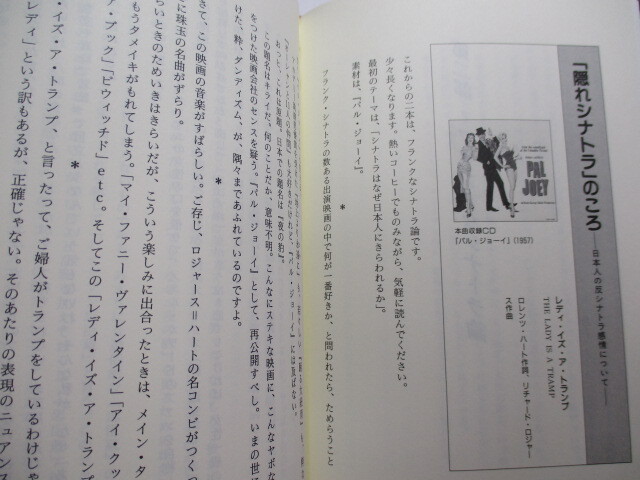 「隠れシナトラ」のころ
──日本人の反シナトラ感情について──
PAL
JOEY
本曲収録CD
『パル・ジョーイ』(1957)
レディ・イズ・ア・トランプ
THE LADY IS A TRAMP
ロレンツ・ハート作詞、リチャード・ロジャー
ス作曲
これからの二本は、フランクなシナトラ論です。
少々長くなります。熱いコーヒーでものみながら、気軽に読んでください。
最初のテーマは、「シナトラはなぜ日本人にきらわれるか」。
素材は、『パル・ジョーイ』。
*
フランク・シナトラの数ある出演映画の中で何が一番好きか、と問われたら、ためらうこと
も大好きだけれど、『パル・ジョーイ』には及ばない。
日本での題名は『夜の豹』。
この題名はキライだ。何のことだか、意味不明。こんなにステキな映画に、こんなヤボな
をつけた映画会社のセンスを疑う。『パル・ジョーイ』として、再公開すべし。いまの世
けた、粋、ダンディズム、が、隅々まであふれているのですよ。
*
きて、この映画の音楽がすばらしい。ご存じ、ロジャース=ハートの名コンビがつくっ
に珠玉の名曲がずらり。
らいときのためいきはきらいだが、こういう楽しみに出合ったときは、メイン・タ
もうタメイキがもれてしまう。「マイ・ファニー・ヴァレンタイン」「アイ・クッ
ア・ブック」「ビウィッチド」etc。そしてこの「レディ・イズ・ア・トラン
*
・イズ・ア・トランプ、と言ったって、ご婦人がトランプをしているわけじゃ
レディ」という訳もあるが、正確じゃない。そのあたりの表現のニュアンス